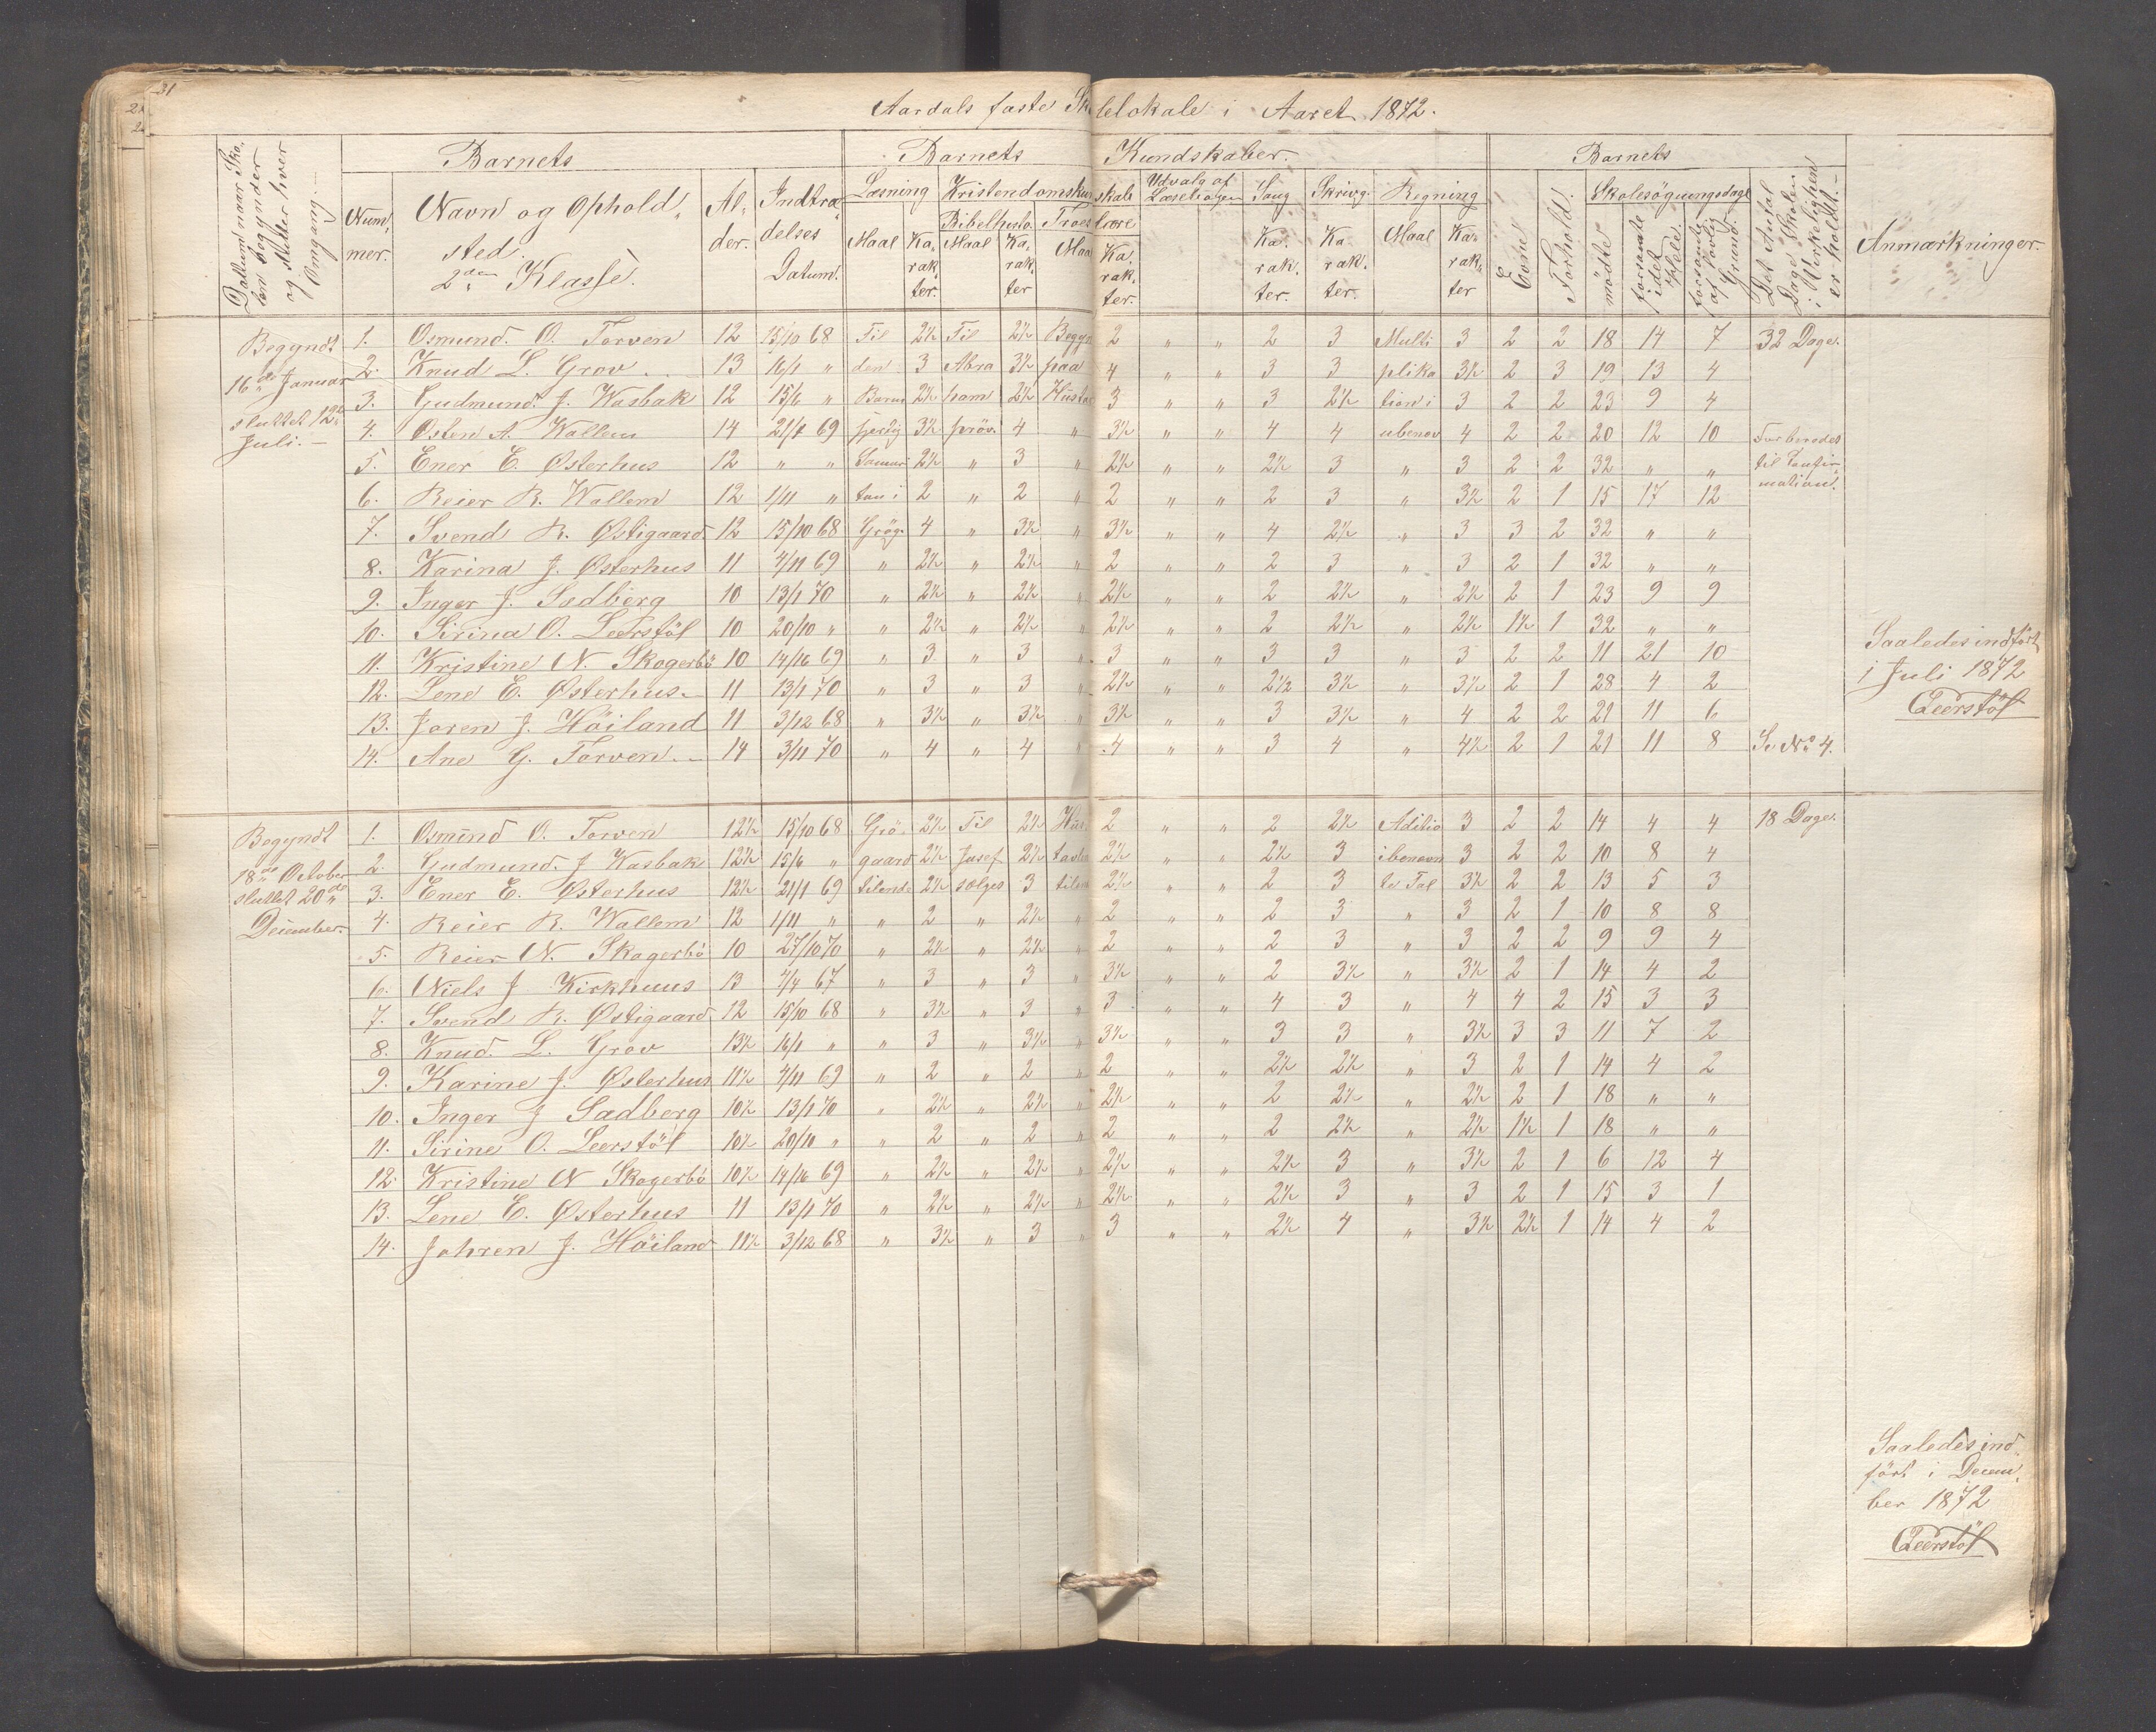 31
Aardals faste Skolelokale i Aaret 1872.
Datum naar Sko-
len begynder
og slutter hver
Omgang.-
Barnets
Barnets Kundskaber.
Barnets
Anmærkninger-
Num-
mer.
Navn og Ophold-
sted.
2den Klasse.
Al-
der.
Indtræ-
delses
Datum.
Læsning
Kristendomskundskab
Udvalg af
Læsebogen
Sang
Skrivg.
Regning
Evne
Forhold.
Skolesøgningsdage
Det Antal
Dage Skolen
i Virkelighed
er holdt.-
Maal
Ka-
rak-
ter.
Bibelhisto.
Maal
Ka-
rak-
ter
Troeslære
Maal
Ka-
rak-
ter.
Ka-
rak-
ter.
Ka
rak.
ter.
Maal
Ka-
rak-
ter
mødte
forsømte
idet
Hele
forsømte
af lovlig
Grund.
Begyndt
16de Januar
sluttet 12te
Juli.-
1. Osmund. O. Torven 12 15/10 68 Til 2½ Til 2½ Begyn 2 " " 2 3 Multi 3 2 2 18 14 7 32 Dage.
2. Knud L. Grov 13 16/1 " den 3 Abra 3½ paa 4 " " 3 3 plika 3½ 2 3 19 13 4
3. Gudmund. J. Wasbak 12 15/6 " Barm 2½ ham 2½ Hustav 3 " " 3 2½ tion i 3 2 2 23 9 4
4. Østen A. Wallem 14 21/1 69 hjertig 3½ prøv. 4 " 3½ " " 4 4 ubenæv 4 2 2 20 12 10 Forberedes
5. Ener E. Østerhus 12 " " Samari 2½ " 3 " 2½ " " 2½ 3 " 3 2 2 32 " " til Confir-
6. Reier R. Wallem 12 1/11 " tan i 2 " 2 " 2 " " 2 3 " 3½ 2 1 15 17 12 mation.
7. Svend R. Østigaard 12 15/10 68 Grøg. 4 " 3½ " 3½ " " 4 2½ " 3 3 2 32 " "
8. Karina J. Østerhus 11 4/11 69 " 2½ " 2½ " 2 " " 2 3 " 3 2 1 32 " "
9. Inger J. Sadberg 10 13/1 70 " 2½ " 2½ " 2½ " " 2 2½ " 2½ 2 1 23 9 9
10. Sirina O. Leerstøl 10 20/10 " " 2½ " 2½ " 2½ " " 2 2½ " 2½ 1½ 1 32 " "
11. Kristine N. Skogerbø 10 14/16 69 " 3 " 3 " 3 " " 3 3 " 3 2 2 11 21 10
12. Lene E. Østerhus.- 11 13/1 70 " 3 " 3 " 2½ " " 2½ 3½ " 3½ 2 1 28 4 2
13. Joren J. Höiland 11 3/12 68 " 3½ " 3½ " 3½ " " 3 3½ " 4 2 2 21 11 6
14. Ane G. Torven.- 14 3/11 70 " 4 " 4 " 4 " " 3 4 " 4½ 2 1 21 11 8 Se No 4.
Saaledes indført
i Juli 1872
Leerstøl
Begyndt
18de October
sluttet 20de
December.
1. Osmund O. Torven 12½ 15/10 68 Grø- 2½ Til 2½ Hus- 2 " " 2 2½ Aditio 3 2 2 14 4 4 18 Dage.
2. Gudmund. J Wasbak 12½ 15/6 " gaard 2½ Josef 2½ tavlen 2½ " " 2½ 3 i benævn 3 2 2 10 8 4
3. Ener E. Østerhus 12½ 21/1 69 tilende 2½ sælges 3 tilende 2½ " " 2 3 te Tal 3½ 2 2 13 5 3
4. Reier R. Wallem 12 1/11 " " 2 " 2½ " 2 " " 2 3 " 3 2 1 10 8 8
5. Reier N. Skogerbø 10 27/10 70 " 2½ " 2½ " 2 " " 2 3 " 3 2 2 9 9 4
6. Niels J Kirkhuus 13 4/4 67 " 3 " 3 " 3½ " " 2 3½ " 3½ 2 1 14 4 2
7. Svend R. Østigaard 12 15/10 68 " 3½ " 3 " 3 " " 4 3 " 4 4 2 15 3 3
8. Knud. L. Grov 13½ 16/1 " " 3 " 3½ " 3½ " " 3 3 " 3½ 3 3 11 7 2
9. Karine J. Østerhus 11½ 4/11 69 " 2 " 2 " 2 " " 2½ 2½ " 3 2 1 14 4 2
10. Inger J Sadberg 10½ 13/1 70 " 2½ " 2½ " 2½ " " 2 2½ " 2½ 2 1 18 " "
11. Sirine O. Leerstøl 10½ 20/10 " " 2 " 2 " 2 " " 2 2½ " 2½ 1½ 1 18 " "
12. Kristine N Skogerbø 10½ 14/16 69 " 2½ " 2½ " 2½ " " 2½ 3 " 3½ 2 1 6 12 4
13. Lene E. Østerhus 11 13/1 70 " 2½ " 2½ " 2½ " " 2½ 3 " 3 2 1 15 3 1
14. Johren J. Höiland 11½ 3/12 68 " 3½ " 3 " 3 " " 2½ 4 " 3½ 2½ 1 14 4 2
Saaledes ind-
ført i Decem-
ber 1872
Leerstøl